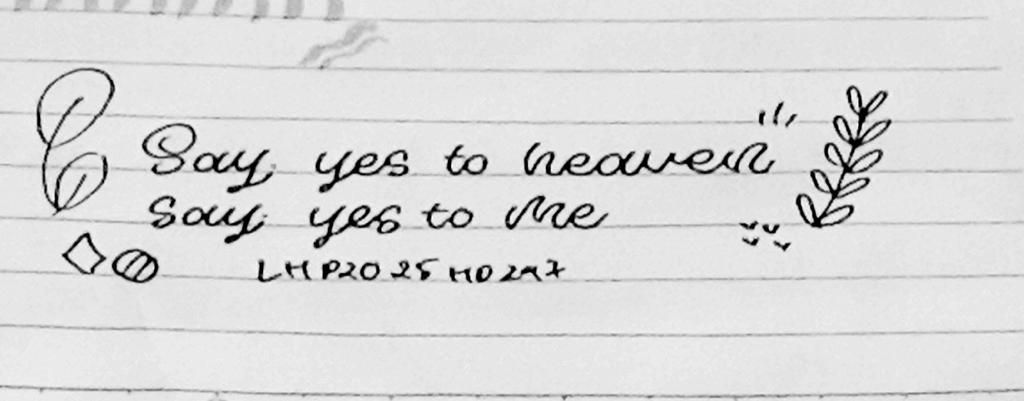 Say yes to heaven
say yes to me
LHP2025HD247